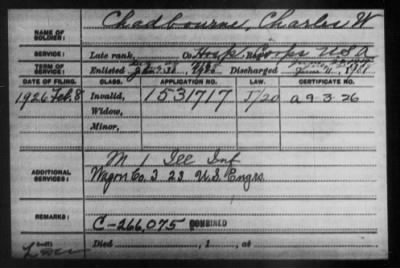 NAME OF SOLDIER: Chadbourne, Charles W
SERVICE: Late rank, Co. Hosp. Corps Reg't U.S.A
TERM OF SERVICE: Enlisted Discharged
DATE OF FILING. CLASS. APPLICATION NO. LAW. CERTIFICATE NO.
1926 Feb. 8 Invalid, 1531717
Widow,
Minor,
M 1 Ill Inf
ADDITIONAL SERVICES: Wagon Co. 3 23 U.S. Engrs
REMARKS: C-266,075 COMBINED
Died , 1 , at